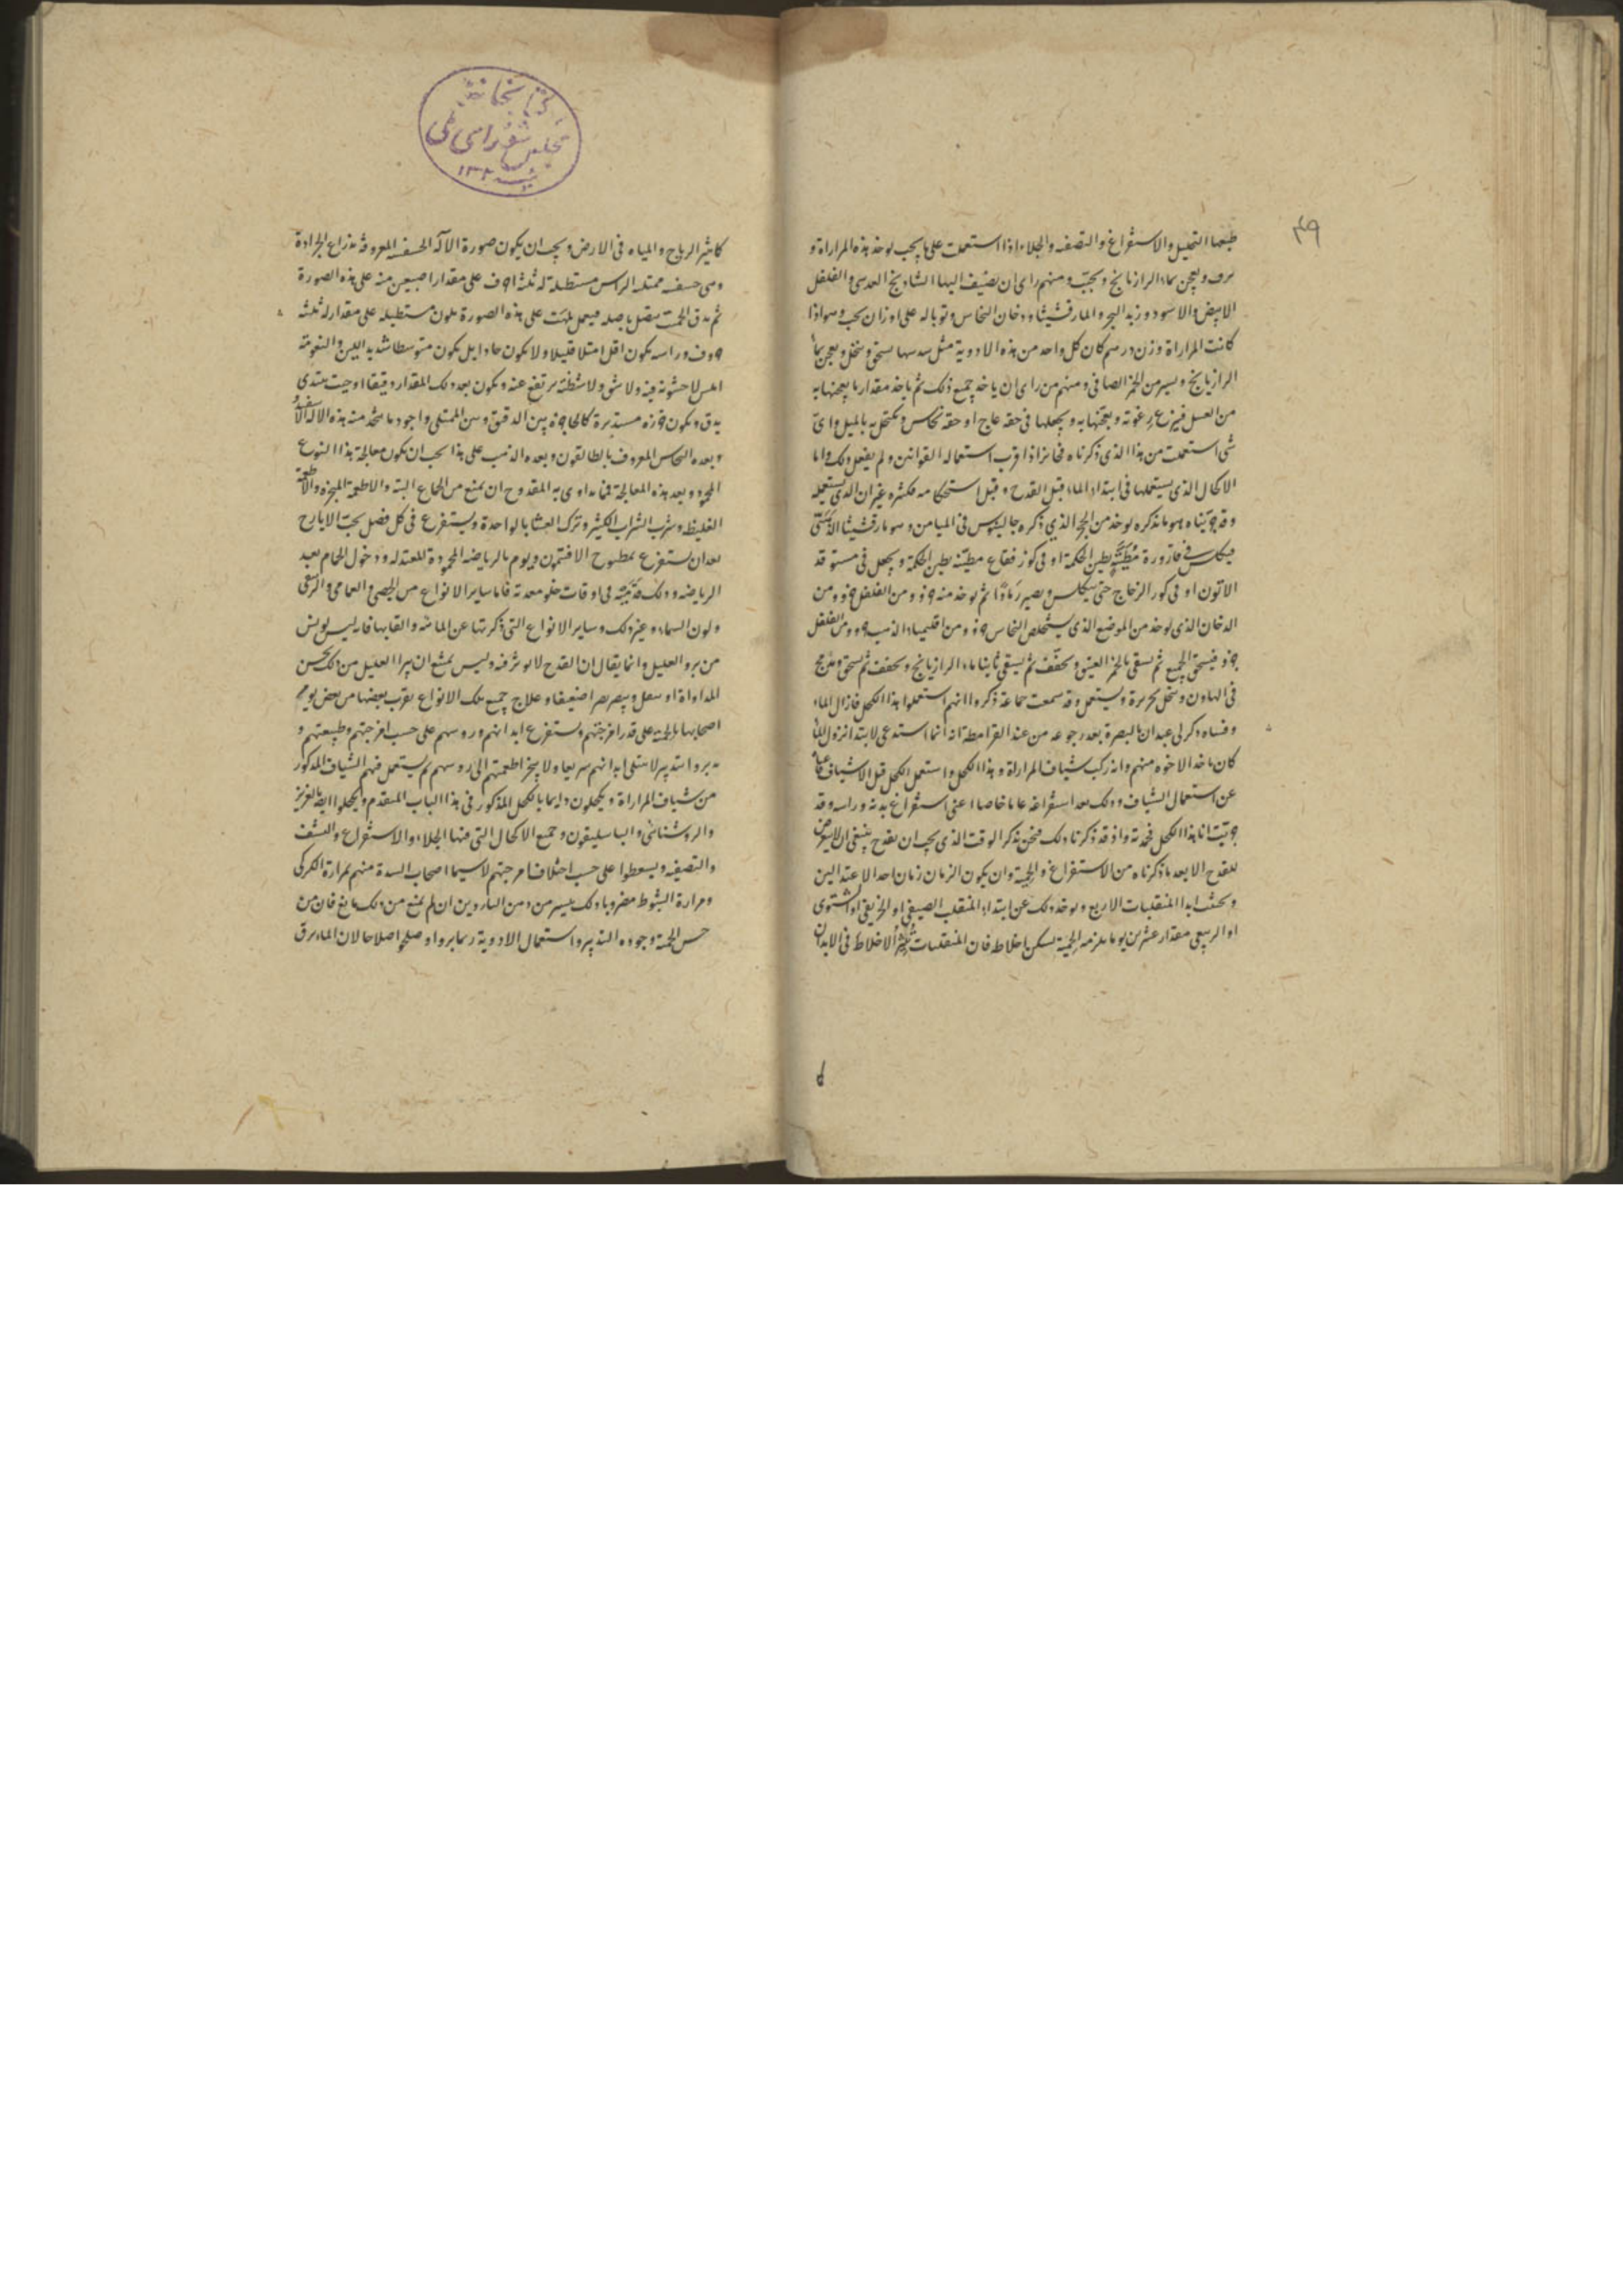 ٤٩
طبعها التحليل والاستفراغ والتصفيه والجلاء اذا استعملت على ما يجب يوخذ هذه المرارة و
ويعجن بماء الرازيانج ويحبب ومنهم راى ان يضيف اليها الشاذنج العدسى والفلفل
الابيض والاسود وزبد البحر والمارقشيثا ودخان النحاس وتوباله على اوزان يجب وهو اذا
كانت المراراة وزن درهم كان كل واحد من هذه الادوية مثل سدسها يسحق وينخل ويعجن بماء
الرازيانج ويسير من الخمر الصافى ومنهم من راى ان ياخذ جميع ذلك ثم ياخذ مقدار ما يعجنها به
من العسل فينزع رغوته ويعجنها به ويجعلها فى حقه عاج او حقه نحاس ويكتحل به بالميل واى
شى استعملت من هذا الذى ذكرناه فجائز اذا قرب استعماله القوانين ولم يفعل ذلك واما
الاكحال الذى يستعملها فى ابتداء الماء قبل القدح وقبل استحكامه فكثيره غير ان الذى يستعمله
وقد جربناه هو ما نذكره يوخذ من الحجر الذي ذكره جالينوس فى الميامن وهو مارقشيثا
فيكلس فى قارورة مطينة بطين الحكمة او فى كوز فقاع مطينه بطين الحكمة ويجعل فى مستوقد
الاتون او فى كور الزجاج حتى يتكلس ويصير رمادا ثم يوخذ منه جزو ومن الفلفل جزو ومن
الدخان الذى يوخذ من الموضع الذى يستخلص النحاس جزو ومن اقليمياء الذهب جزو ومن الفلفل
جزو فيسحق الجميع ثم يسقى بالخمر العتيق ويجفف ثم يسقى ثانيا ماء الرازيانج ويجفف ثم يسحق
فى الهاون وينخل بحريرة ويستعمل وقد سمعت جماعة ذكروا انهم استعملوا هذا الكحل فازال الماء
وذكر لى عبدان بالبصرة بعد رجوعه من عند القرامطة انه انما استدعى لابتداء نزول الماء
كان باحد الاخوه منهم وانه ركب شياف المراراة وهذا الكحل واستعمل الكحل قبل الاشياف
عن استعمال الشياف وذلك بعد استفراغه عاما خاصا اعنى استفراغ بدنه وراسه وقد
جربت انا هذا الكحل فحمدته واذ قد ذكرنا ذلك فنحن نذكر الوقت الذى يجب ان يقدح ينبغى ان لا يتعرض
للقدح الا بعد ما ذكرناه من الاستفراغ والحمية وان يكون الزمان زمان احد الاعتدالين
ويجتنب ابدا المنقلبات الاربع ويوخذ ذلك عن ابتداء المنقلب الصيفى او الخريفى او الشتوى
او الربيعى مقدار عشرين يوما يلزمه الحمية ليسكن اخلاطه فان المنقلبات تثير الاخلاط فى الابدان
كتابخانه
مجلس شوراى ملى
كتاثير الرياح والمياه فى الارض ويجب ان يكون صورة الآلة المعروفة بذراع الجرادة
وهى ممتده الراس مستطيلة له ثلثة احرف على مقدار اصبعين منه على هذه الصورة
ثم يدق يتصل باصله فيعمل على هذه الصورة يكون مستطيله على مقدار له ثلثة
حروف وراسه يكون اقل امتلا قليلا ولا يكون حادا بل يكون متوسطا شديد اللين والنعومة
املس لا خشونه فيه ولا شق ولا شظيه يرتفع عنه ويكون بعد ذلك المقدار دقيقا وحيث يبتدى
يدق ويكون خرزه مستديرة كالحاجزة بين الدقيق وبين الممتلى واجود ما يتخذ منه هذه الاله
وبعده النحاس المعروف بالطالقون وبعده الذهب على هذا يجب ان يكون معالجة هذا النوع
وبعد هذه المعالجة فما يداوى به المقدوح ان يمنع من الجماع البتة والاطعمة المبخرة والاطعمة
الغليظه وشرب الشراب الكثير وترك العشا بالواحدة ويستفرغ فى كل فصل بحب الايارج
بعد ان يستفرغ بمطبوخ الافتيمون ويدوم بالرياضه المحمودة المعتدله ودخول الحمام بعد
الرياضه وذلك فى اوقات خلو معدته فاما ساير الانواع من الجصى و العمامى والزيبقى
ولون السماء وغير ذلك وساير الانواع التى ذكرتها عن المائه والقابها فاريس يويس
من برو العليل وانما يقال ان القدح لا يوثر فيه وليس يمتنع ان يبرا العليل من ذلك بحسن
المداواة او يقل ويبصر بصرا ضعيفا وعلاج جميع تلك الانواع يقرب بعضها من بعض
اصحابها بالحمية على قدر امزجتهم ويستفرغ ابدانهم وروسهم على حسب امزجتهم وطبيعتهم و
يدبروا بتدبير لا يمتلى ابدانهم سريعا ولا يبخر اطعمتهم الى روسهم ثم يستعمل فيهم الشياف المذكور
من شياف المراراة ويكحلون دايما بالكحل المذكور فى هذا الباب المتقدم ويكحلوا ايضا بالعزيز
والروشنائى والباسليقون وجميع الاكحال التى فيها الجلاء والاستفراغ والنشف
والتصفيه ويسعطوا على حسب اختلاف امزجتهم لاسيما اصحاب السدة منهم بمرارة الكركى
ومرارة الشبوط مضروبا ذلك بيسير من دهن الناردين ان لم يمنع من ذلك مانع فان من
حسن الحمية وجودة التدبير واستعمال الادوية ربما بروا وصلحوا اصلاحا لان الماء يرق